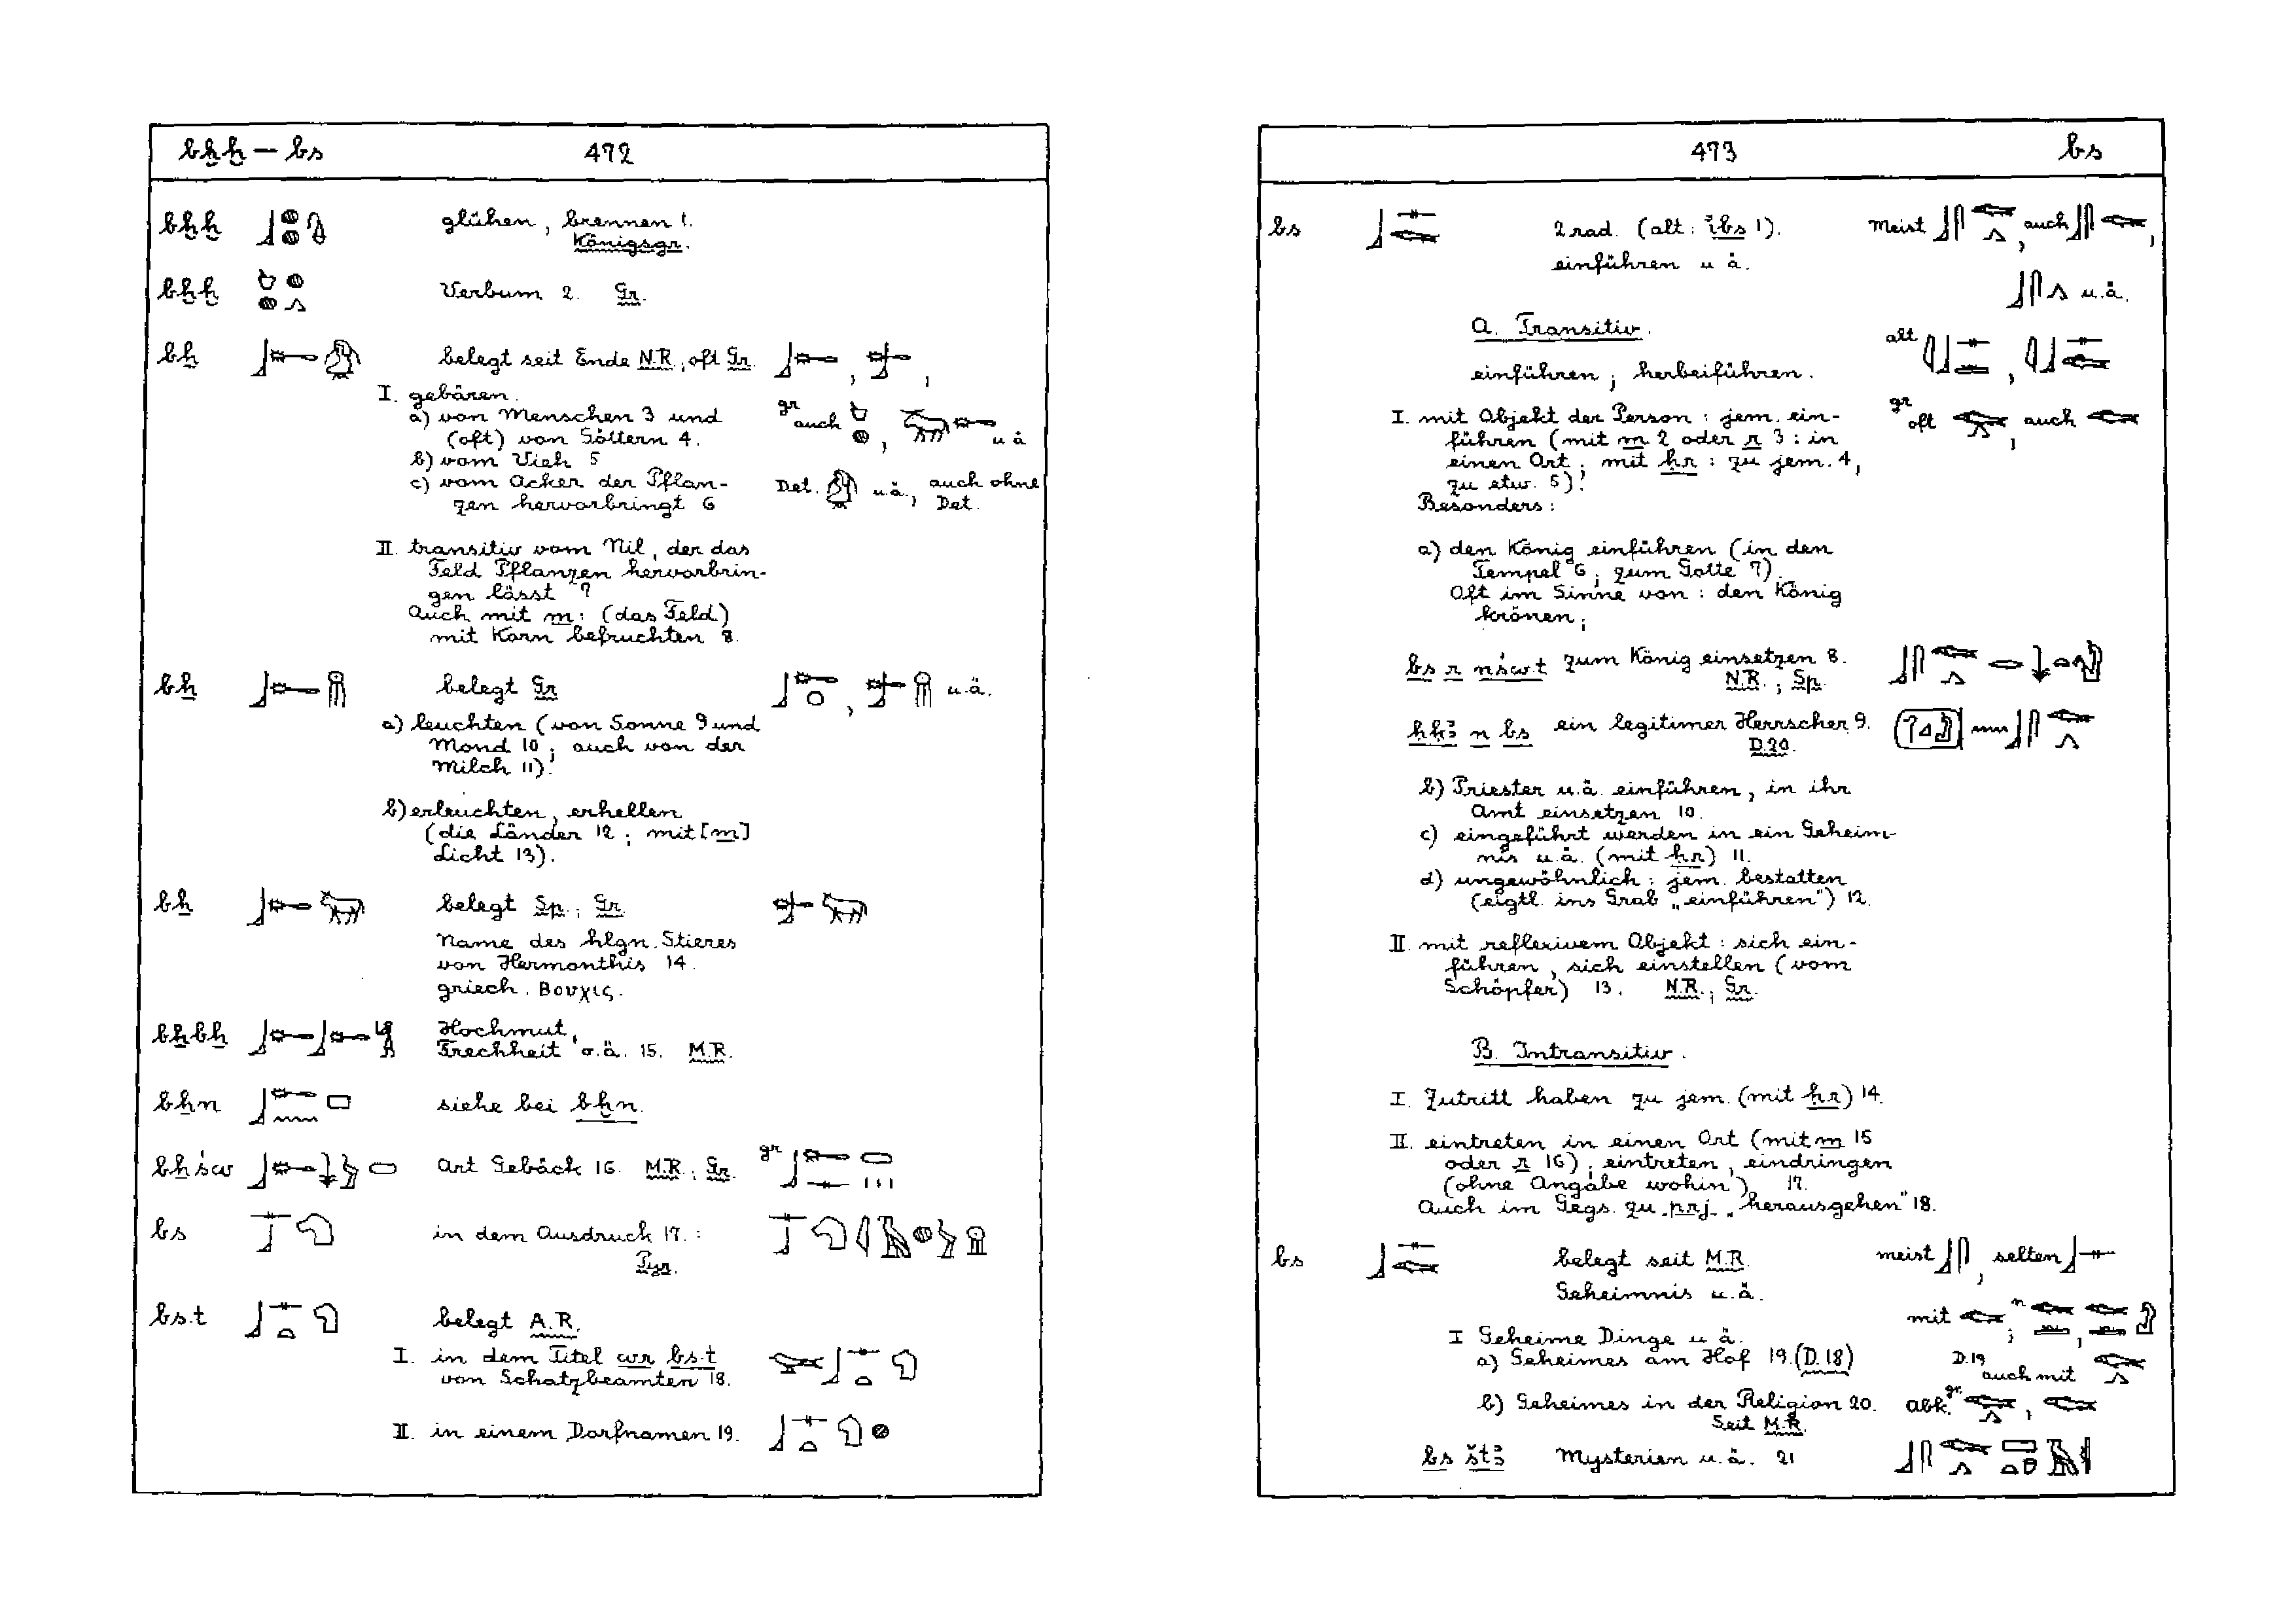 bḫḫ — bs 472
bḫḫ glühen, brennen 1.
Königsgr.
bḫḫ Verbum 2. Gr.
bẖ belegt seit Ende N.R.; oft Gr.
I. gebären.
a) von Menschen 3 und
(oft) von Göttern 4.
gr auch
u ä
b) vom Vieh 5
c) vom Acker der Pflan-
zen hervorbringt 6
Det. u.ä., auch ohne
Det.
II. transitiv vom Nil, der das
Feld Pflanzen hervorbrin-
gen lässt 7
Auch mit m: (das Feld)
mit Korn befruchten 8.
bẖ belegt Gr u.ä.
a) leuchten (von Sonne 9 und
Mond 10; auch von der
Milch 11).
b) erleuchten, erhellen
(die Länder 12; mit [m]
Licht 13).
bẖ belegt Sp.; Gr.
Name des hlgn. Stieres
von Hermonthis 14.
griech. Βουχις.
bẖbẖ Hochmut,
Frechheit o.ä. 15. M.R.
bẖn siehe bei bḫn.
bẖśw Art Gebäck 16. M.R.; Gr. gr
bs in dem Ausdruck 17. :
Pyr.
bs.t belegt A.R.
I. in dem Titel wr bs.t
von Schatzbeamten 18.
II. in einem Dorfnamen 19.
473 bs
bs 2 rad. (alt: ỉbs 1). meist , auch ,
einführen u ä.
u.ä.
A. Transitiv.
alt
einführen; herbeiführen.
I. mit Objekt der Person: jem. ein-
führen (mit m 2 oder r 3: in
einen Ort; mit ḥr: zu jem. 4,
zu etw. 5).
gr oft , auch
Besonders:
a) den König einführen (in den
Tempel 6; zum Gotte 7)
Oft im Sinne von: den König
krönen;
bs r nśw.t zum König einsetzen 8.
N.R.; Sp.
ḥḳꜣ n bs ein legitimer Herrscher 9.
D.20.
b) Priester u.ä. einführen, in ihr
Amt einsetzen 10.
c) eingeführt werden in ein Geheim-
nis u.ä. (mit ḥr) 11.
d) ungewöhnlich: jem. bestatten
(eigtl. ins Grab „einführen") 12.
II. mit reflexivem Objekt: sich ein-
führen, sich einstellen (vom
Schöpfer) 13. N.R.; Gr.
B. Intransitiv.
I. Zutritt haben zu jem. (mit ḥr) 14.
II. eintreten in einen Ort (mit m 15
oder r 16); eintreten, eindringen
(ohne Angabe wohin) 17.
Auch im Gegs. zu prj „herausgehen" 18.
bs belegt seit M.R. meist , selten
Geheimnis u.ä.
mit
I Geheime Dinge u ä.
a) Geheimes am Hof 19. (D.18)
D.19 auch mit
b) Geheimes in der Religion 20. abk. gr.
Seit M.R.
bs štꜣ Mysterien u.ä. 21